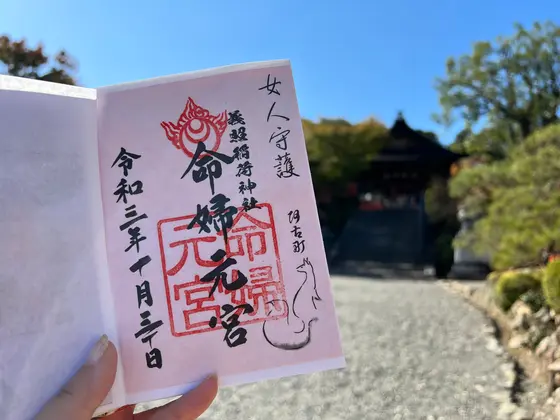 女人守護
義照稲荷神社
阿古町
命婦元宮
命婦
元宮
令和三年十月三十日